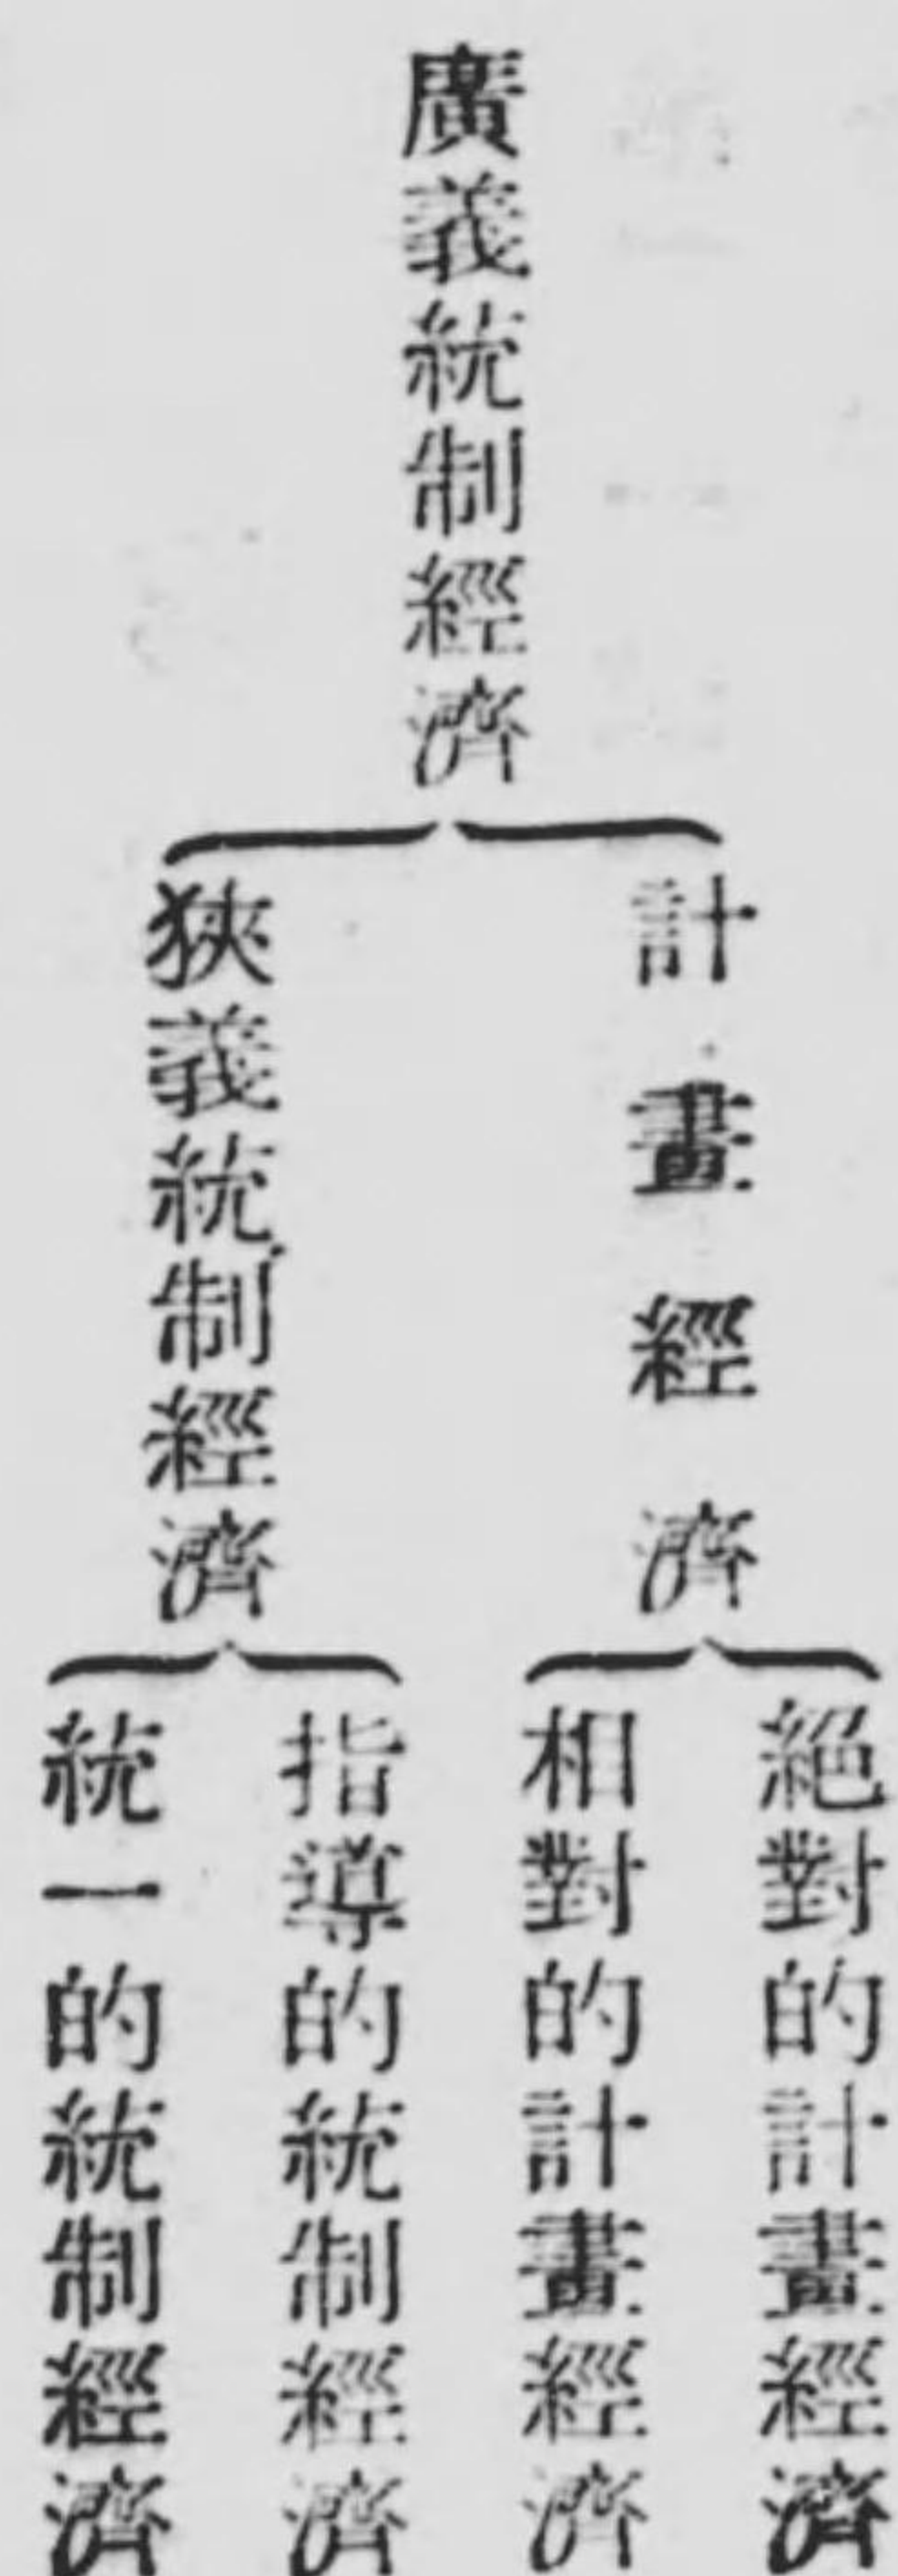 廣義統制經濟
計畫經濟
絕對的計畫經濟
相對的計畫經濟
狹義統制經濟
指導的統制經濟
統一的統制經濟